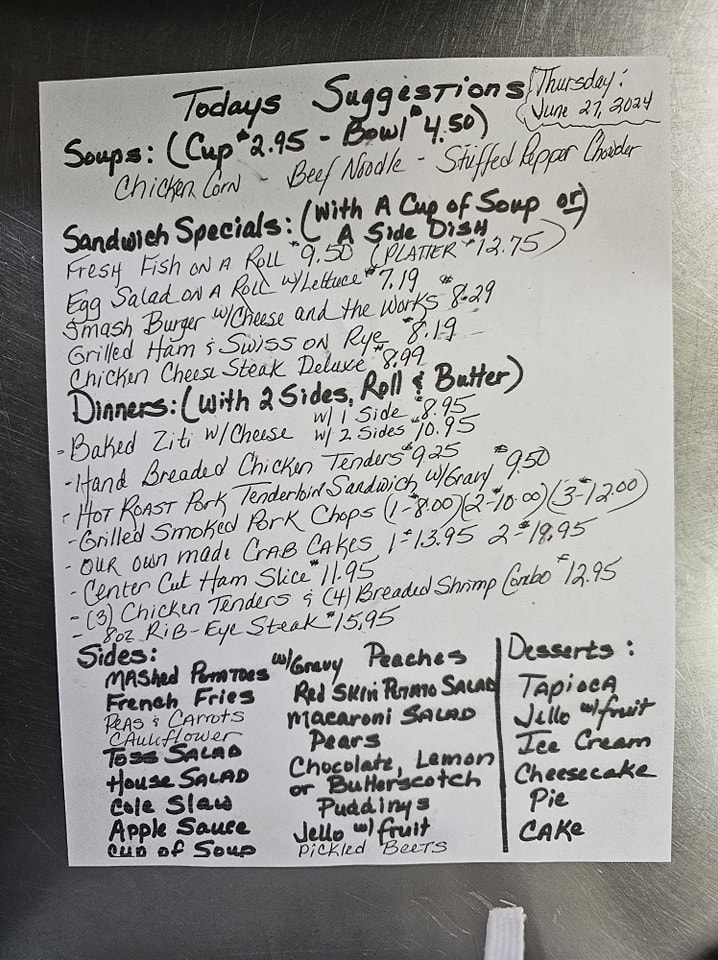 Todays Suggestions
Thursday:
June 27, 2024
Soups: (Cup $2.95 - Bowl $4.50)
Chicken Corn - Beef Noodle - Stuffed Pepper Chowder
Sandwich Specials: (With A Cup of Soup or)
A Side DISH
FRESH FISH ON A ROLL $9.50 (PLATTER $12.75)
Egg Salad ON A ROLL w/Lettuce $7.19
Smash Burger w/Cheese and the Works $8.29
Grilled Ham & SWISS ON Rye $8.19
Chicken Cheese Steak Deluxe $8.99
Dinners: (With 2 Sides, Roll & Butter)
- Baked Ziti w/Cheese w/ 1 Side $8.95
w/ 2 Sides $10.95
- Hand Breaded Chicken Tenders $9.25
- HOT ROAST PORK Tenderloin Sandwich w/Gravy $9.50
- Grilled Smoked Pork Chops (1-$8.00) (2-$10.00) (3-$12.00)
- OUR OWN made CRAB CAKES 1=13.95 2=$18.95
- Center Cut Ham Slice $11.95
- (3) Chicken Tenders & (4) Breaded Shrimp Combo $12.95
- 8oz RIB-Eye Steak $15.95
Sides:
MASHed POTATOES w/Gravy
French Fries
PEAS & CARROTS
CAULIFLOWER
TOSS SALAD
House SALAD
Cole Slaw
Apple Sauce
Cup of Soup
Peaches
Red SKIN POTATO SALAD
Macaroni SALAD
Pears
Chocolate, Lemon
or Butterscotch
Puddings
Jello w/ fruit
PICKLED BEETS
Desserts:
TAPIOCA
Jello w/fruit
Ice Cream
Cheesecake
Pie
CAKe